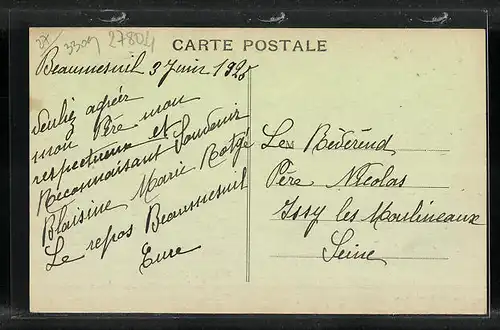 33 27804
CARTE POSTALE
Beaumesnil 3 Juin 1925
Veuillez agréer
mon Père mon
respectueux et
Reconnaisant Souvenir
Blaisine Marie Rotgé
Le repos Beaumesnil
Eure
Le Révérend
Père Nicolas
Issy les Moulineaux
Seine